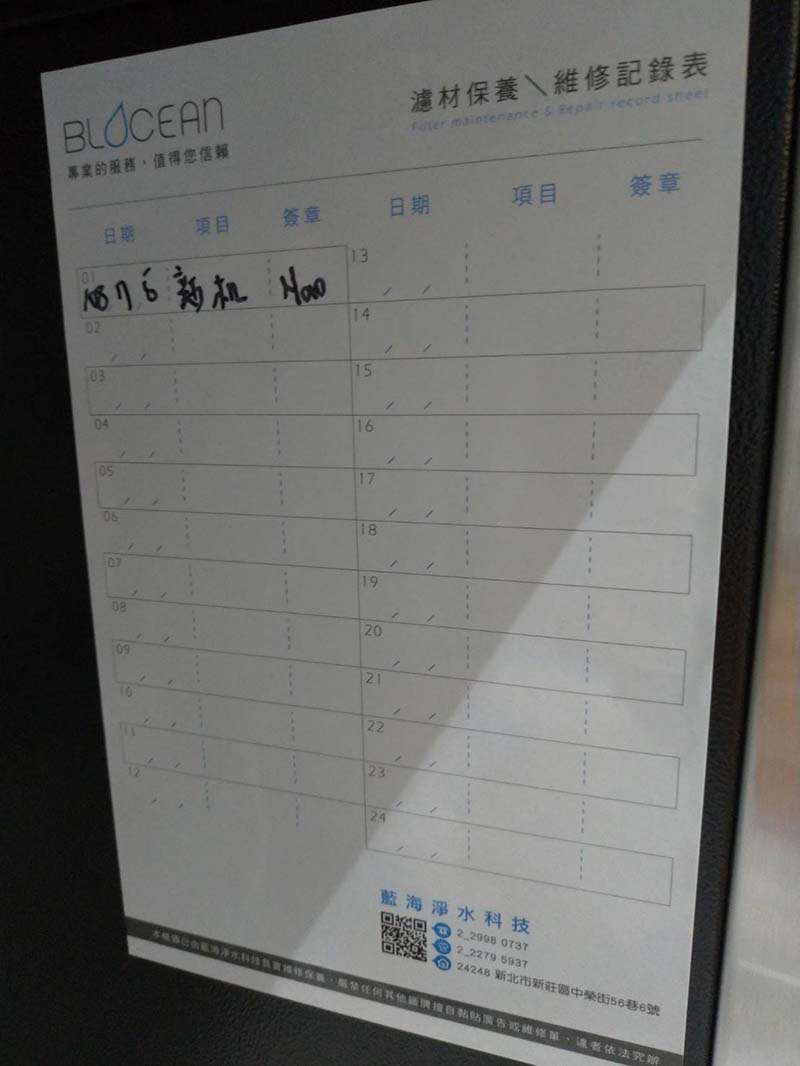 BLOCEAN
專業的服務，值得您信賴
濾材保養＼維修記錄表
Filter maintenance & Repair record sheet
日期 項目 簽章
01 108 7 6 新机
02 / /
03 / /
04 / /
05 / /
06 / /
07 / /
08 / /
09 / /
10 / /
11 / /
12 / /
日期 項目 簽章
13 / /
14 / /
15 / /
16 / /
17 / /
18 / /
19 / /
20 / /
21 / /
22 / /
23 / /
24 / /
藍海淨水科技
2_2998 0737
2_2279 5937
24248 新北市新莊區中榮街56巷6號
本機器已由藍海淨水科技負責維修保養，嚴禁任何其他廠牌擅自黏貼廣告或維修單，違者依法究辦